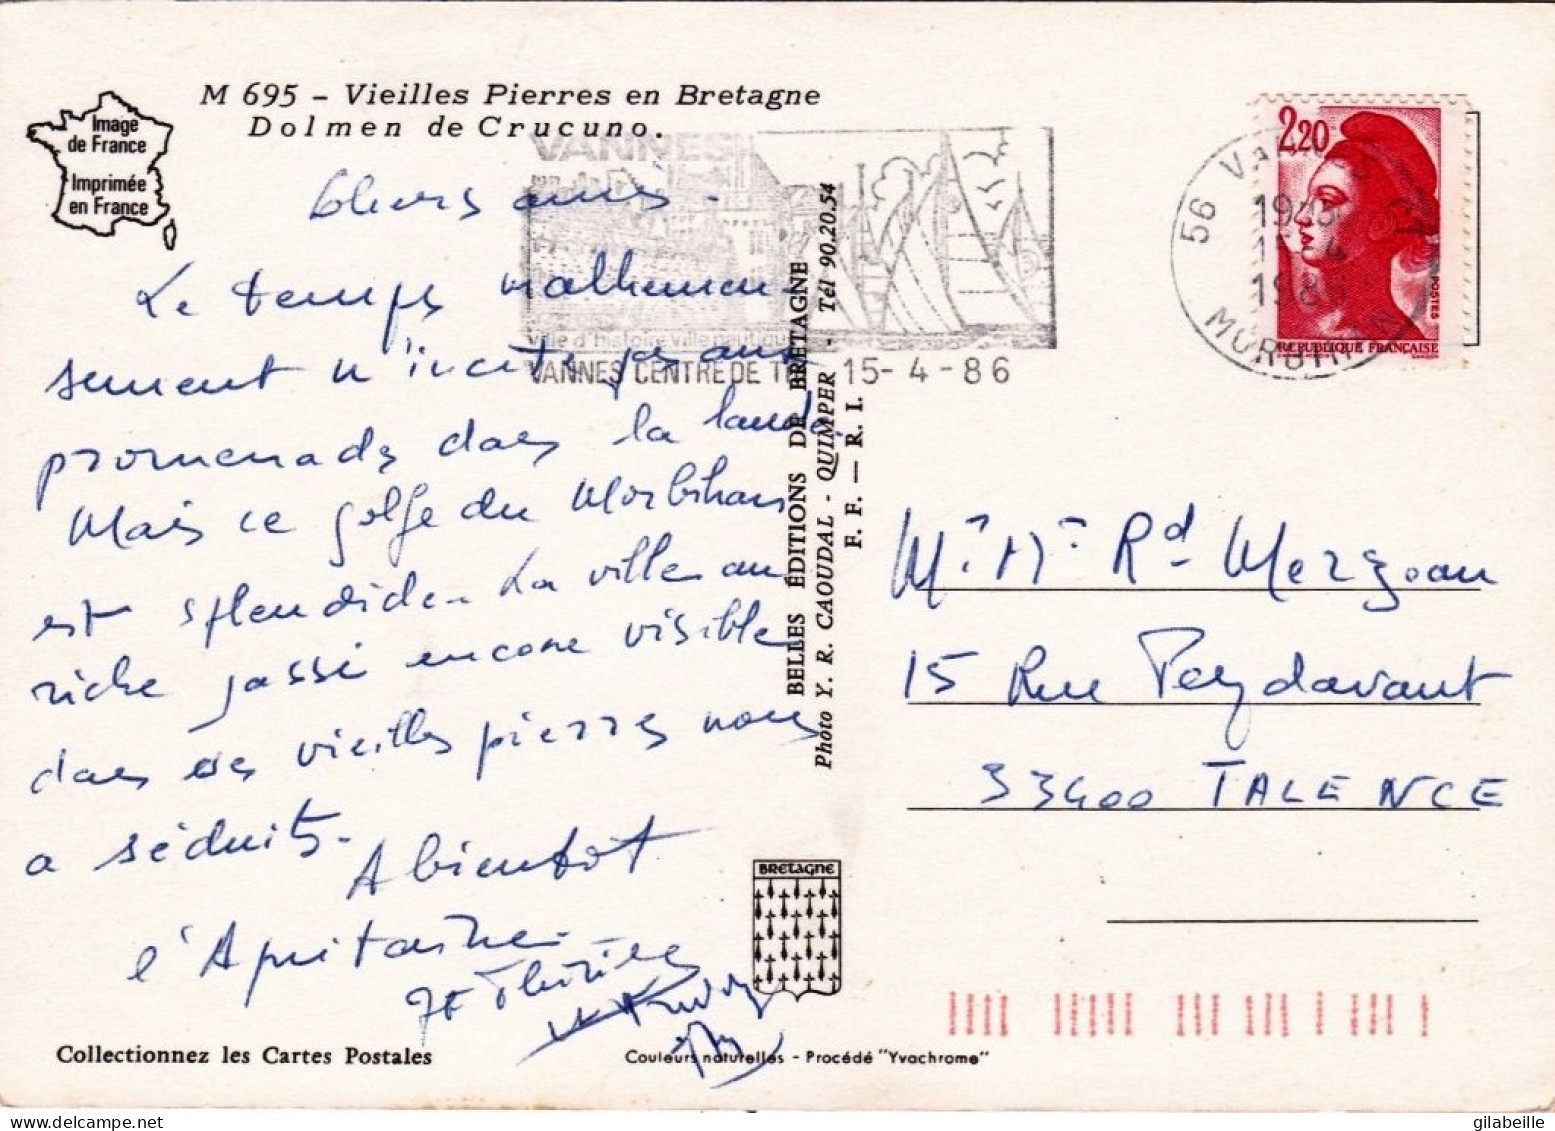 M 695 - Vieilles Pierres en Bretagne
Dolmen de Crucuno.
Image
de France
Imprimée
en France
Chers amis -
Le temps malheureu-
sement n'incite pas aux
promenades dans la lande.
Mais ce golfe du Morbihan
est splendide. La ville au
riche passé encore visible
dans ses vieilles pierres nous
a séduits -
A bientôt
l'Aquitaine -
JF Thiriez
VANNES
ville d'histoire ville nautique
VANNES CENTRE DE TRI 15- 4 - 86
BELLES ÉDITIONS DE BRETAGNE
Photo Y. R. CAOUDAL - QUIMPER - Tél 90.20.54
F. F. — R. I.
2,20
POSTES
REPUBLIQUE FRANÇAISE
56 VANNES
15-4
1986
MORBIHAN
Mr. Mr. Rd Merzeau
15 Rue Peydavant
33400 TALENCE
BRETAGNE
Collectionnez les Cartes Postales
Couleurs naturelles - Procédé "Yvachrome"
gilabeille